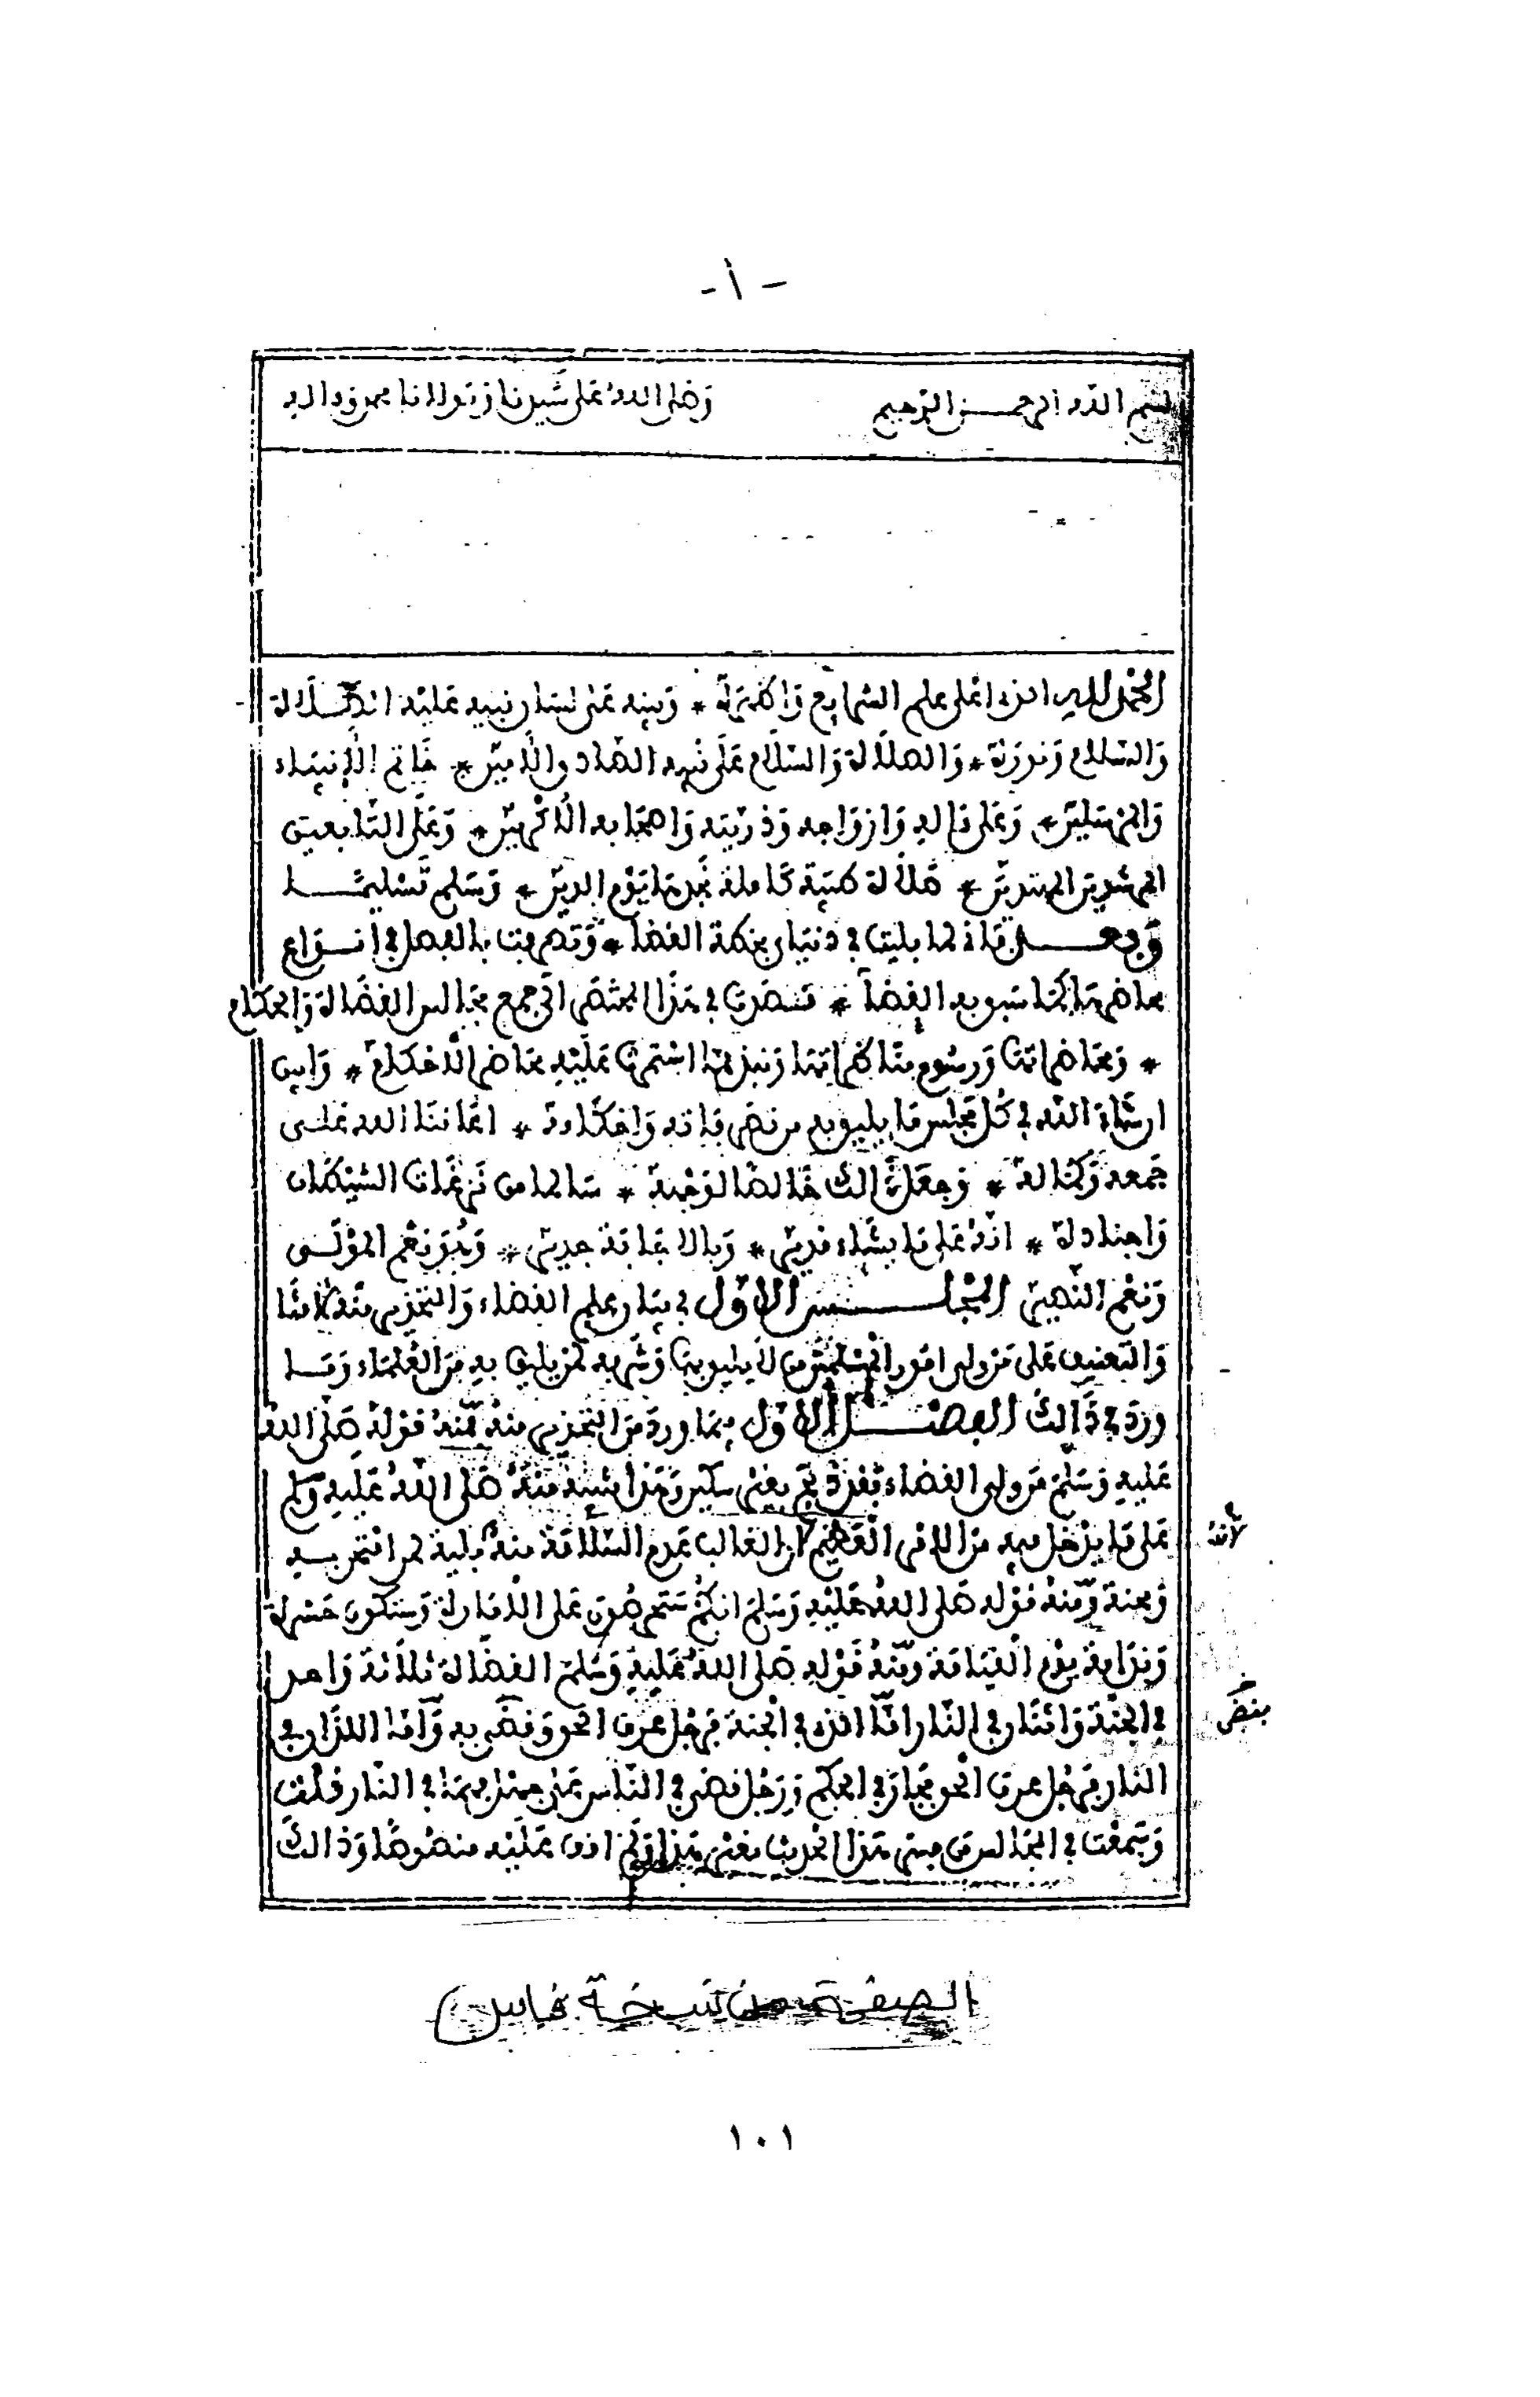 -أ-
بسم الله الرحمن الرحيم وصلى الله على سيدنا ومولانا محمد وءاله
الحمد لله الذي اعلى علم الشرايع واظهره * وبينه على لسان نبيه عليه الصلاة
والسلام ونوره * والصلاة والسلام على نبيه الصادق الامين * خاتم الانبياء
والمرسلين * وعلى ءاله وازواجه وذريته واصحابه الاكرمين * وعلى التابعين
المرشدين المهتدين * صلاة طيبة كاملة نجدها يوم الدين * وسلم تسليمــا
وبعــد فاني لما بليت في دنياي بخطة القضا * وتصرفت بالفصل في انــواع
محاضرها كما سبق به القضا * قصدت في هذا المختصر الى جمع مجالس القضاة والحكام
* ومحاضراتها ورسوم مناكراتها ونبذ مما استمرت عليه محاضر الاحكام * وابين
ان شاء الله في كل مجلس ما يليق به من تضرباته واحكامه * اعاننا الله علــى
جمعه وكماله * وجعل ذالك خالصا لوجهه * سالما من نزغات الشيطان
واجناده * انه على ما يشاء قدير * وبالاجابة جدير * وهو نعم المولــى
ونعم النصير المجلــس الاول في بيان علم القضاء والتحذير منه لامنا
والتعنيف على من ولي امور المسلمين من لا يليق بها وشبهه لمن يليق به من العلماء ومــا
ورد في ذالك الفصــل الاول فيما ورد من التحذير منه فمنه قوله صلى الله
عليه وسلم من ولي القضاء فقد ذبح بغير سكين وهذا تنبيه منه صلى الله عليه وسلم
على ما يدخل فيه من الامر العظيم اذ الغالب عدم السلامة منه بلية لمن ابتلي بــه
ومحنة ومنه قوله صلى الله عليه وسلم انكم ستحرصون على الامارة وستكون حسرة
وندامة يوم القيامة ومنه قوله صلى الله عليه وسلم القضاة ثلاثة واحد
في الجنة واثنان في النار اما الذي في الجنة فرجل عرف الحق وقضى به واما اللذان في
النار فرجل عرف الحق فجار في الحكم ورجل قضى في الناس على جهل فهما في النار قلت
وسمعت في المجالس من فسر هذا الحديث بغير هذا ولم اقف عليه منصوصا وذالك
لأنه
بنص
الصفحة من نسخة فاس
١٠١